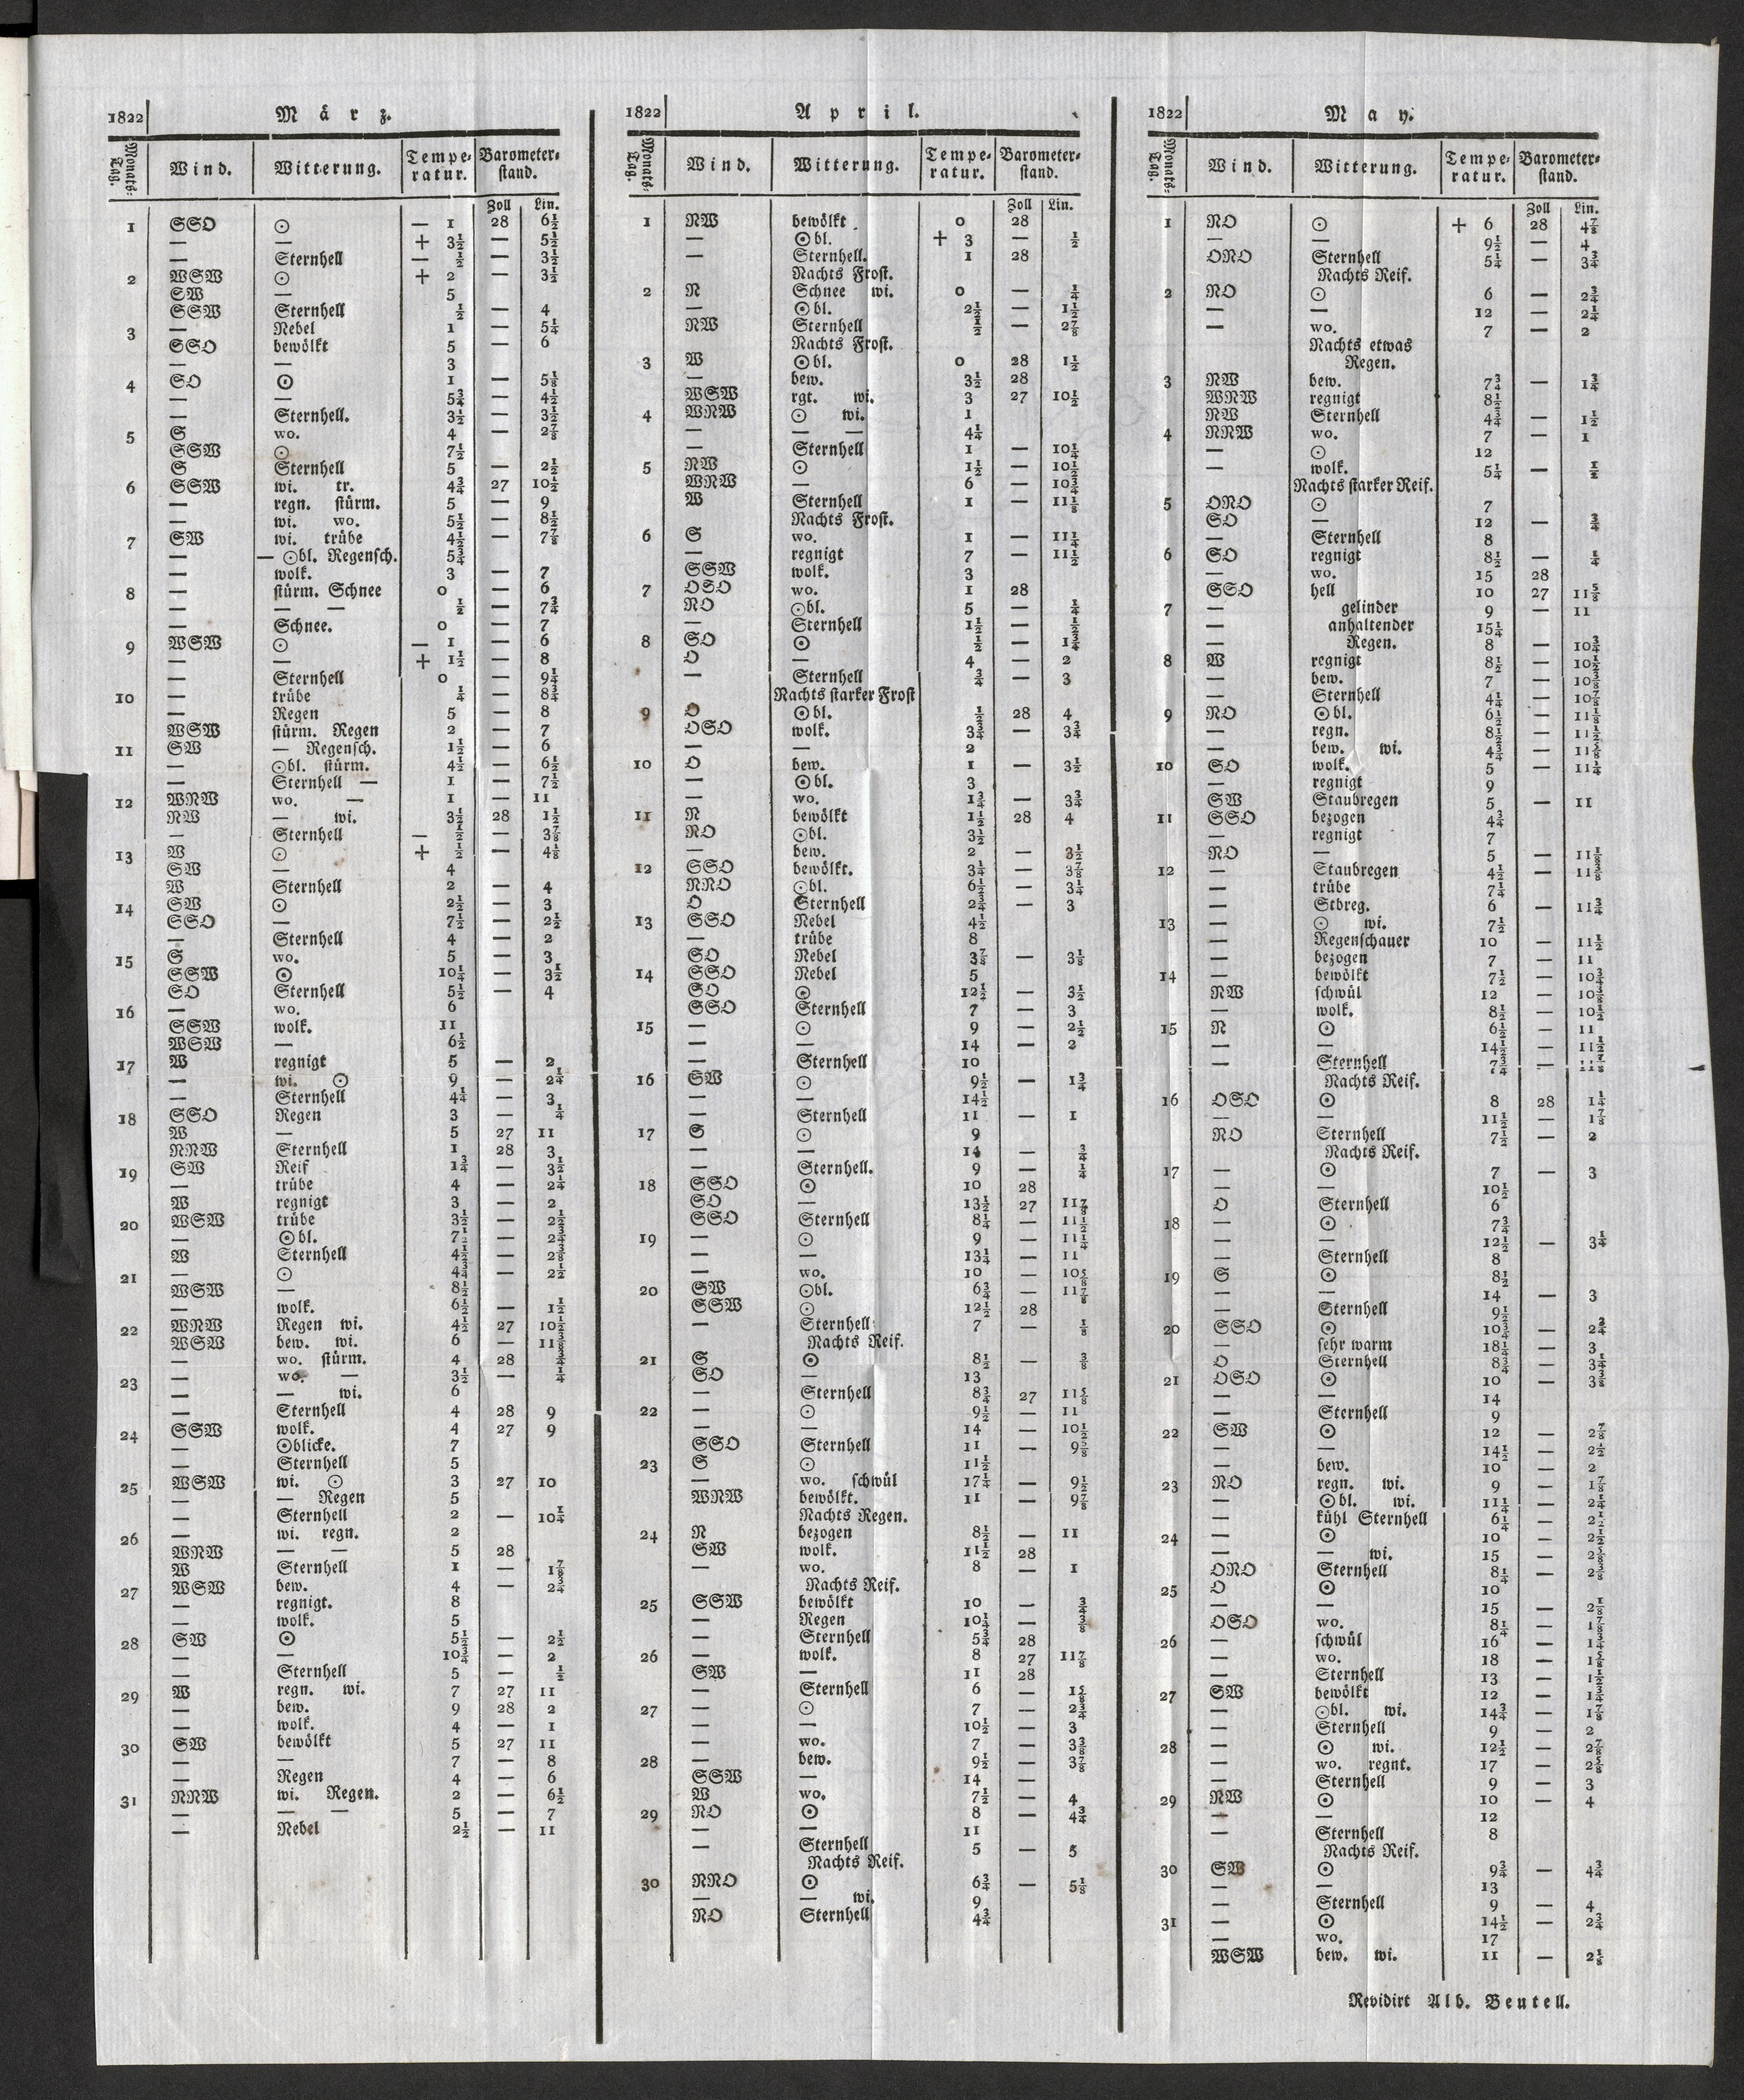 1822 März.
Monats-Tag. Wind. Witterung. Temperatur. Barometerstand.
Zoll Lin.
1 SSO ☉ — 1 28 6½
— — + 3½ — 5½
— Sternhell — ½ — 3½
2 WSW ☉ + 2 — 3½
SW — 5
SSW Sternhell ½ — 4
3 — Nebel 1 — 5¼
SSO bewölkt 5 — 6
— — 3
4 SO ☉ 1 — 5⅛
— — 5¾ — 4½
— Sternhell. 3½ — 3½
5 S wo. 4 — 2⅞
SSW ☉ 7½
S Sternhell 5 — 2½
6 SSW wi. tr. 4¾ 27 10½
— regn. stürm. 5 — 9
— wi. wo. 5½ — 8½
7 SW wi. trübe 4½ — 7⅞
— — ☉bl. Regensch. 5¾
— wolk. 3 — 7
8 — stürm. Schnee 0 — 6
— — — ½ — 7¾
— Schnee. 0 — 7
9 WSW ☉ — 1 — 6
— — + 1½ — 8
— Sternhell 0 — 9¼
10 — trübe ¼ — 8¾
— Regen 5 — 8
WSW stürm. Regen 2 — 7
11 SW — Regensch. 1½ — 6
— ☉bl. stürm. 4½ — 6½
— Sternhell — 1 — 7½
12 WNW wo. — 1 — 11
NW — wi. 3½ 28 1½
— Sternhell — ½ — 3⅞
13 W ☉ + ½ — 4⅛
SW — 4
W Sternhell 2 — 4
14 SW ☉ 2½ — 3
SSO — 7½ — 2½
— Sternhell 4 — 2
15 S wo. 5 — 3
SSW ☉ 10¼ — 3½
SO Sternhell 5½ — 4
16 — wo. 6
SSW wolk. 11
WSW — 6½
17 W regnigt 5 — 2
— wi. ☉ 9 — 2¼
— Sternhell 4¼ — 3
18 SSO Regen 3 — ¼
W — 5 27 11
NNW Sternhell 1 28 3
19 SW Reif 1¾ — 3½
— trübe 4 — 2¼
W regnigt 3 — 2
20 WSW trübe 3½ — 2½
— ☉bl. 7½ — 2¾
W Sternhell 4½ — 2⅜
21 — ☉ 4¾ — 2½
WSW — 8½
— wolk. 6½ — 1½
22 WNW Regen wi. 4½ 27 10½
WSW bew. wi. 6 — 11⅜
— wo. stürm. 4 28 ¾
23 — wo. — 3½ — ¼
— — wi. 6
— Sternhell 4 28 9
24 SSW wolk. 4 27 9
— ☉blicke. 7
— Sternhell 5
25 WSW wi. ☉ 3 27 10
— — Regen 5
— Sternhell 2 — 10¼
26 — wi. regn. 2
WNW — — 5 28
W Sternhell 1 — 1⅞
27 WSW bew. 4 — 2¾
— regnigt. 8
— wolk. 5
28 SW ☉ 5½ — 2½
— — 10¾ — 2
— Sternhell 5 — ½
29 W regn. wi. 7 27 11
— bew. 9 28 2
— wolk. 4 — 1
30 SW bewölkt 5 27 11
— — 7 — 8
— Regen 4 — 6
31 NNW wi. Regen. 2 — 6½
— — — 5 — 7
— Nebel 2½ — 11
1822 April.
Monats-Tag. Wind. Witterung. Temperatur. Barometerstand.
Zoll Lin.
1 NW bewölkt 0 28
— ☉bl. + 3 — ½
— Sternhell. 1 28
Nachts Frost.
2 N Schnee wi. 0 — ¼
— ☉bl. 2½ — 1½
NW Sternhell ½ — 2⅞
Nachts Frost.
3 W ☉bl. 0 28 1½
— bew. 3½ 28
WSW rgt. wi. 3 27 10½
4 WNW ☉ wi. 1
— — — 4¼
— Sternhell 1 — 10¼
5 NW ☉ 1½ — 10½
WNW — 6 — 10¾
W Sternhell 1 — 11⅛
Nachts Frost.
6 S wo. 1 — 11¼
— regnigt 7 — 11½
SSW wolk. 3
7 OSO wo. 1 28
NO ☉bl. 5 — ¼
— Sternhell 1½ — ½
8 SO ☉ ½ — 1¾
O — 4 — 2
— Sternhell ¾ — 3
Nachts starker Frost
9 O ☉bl. ½ 28 4
OSO wolk. 3¾ — 3¾
— — 2
10 O bew. 1 — 3½
— ☉bl. 3
— wo. 1¾ — 3¾
11 N bewölkt 1½ 28 4
NO ☉bl. 3½
— bew. 2 — 3½
12 SSO bewölkt. 3¼ — 3⅞
NNO ☉bl. 6½ — 3¼
O Sternhell 2¾ — 3
13 SSO Nebel 4½
— trübe 8
SO Nebel 3⅞ — 3⅛
14 SSO Nebel 5
SO ☉ 12½ — 3½
SSO Sternhell 7 — 3
15 — ☉ 9 — 2½
— — 14 — 2
— Sternhell 10
16 SW ☉ 9½ — 1¾
— — 14½
— Sternhell 11 — 1
17 S ☉ 9
— — 14 — ¾
— Sternhell. 9 — ¼
18 SSO ☉ 10 28
SO — 13½ 27 11⅞
SSO Sternhell 8¼ — 11½
19 — ☉ 9 — 11¼
— — 13¼ — 11
— wo. 10 — 10⅝
20 SW ☉bl. 6¾ — 11⅞
SSW ☉ 12½ 28
— Sternhell 7 — ⅛
Nachts Reif.
21 S ☉ 8½ — ⅜
SO — 13
— Sternhell 8¾ 27 11⅝
22 — ☉ 9½ — 11
— — 14 — 10½
SSO Sternhell 11 — 9⅝
23 S ☉ 11½
— wo. schwül 17¼ — 9½
WNW bewölkt. 11 — 9⅞
Nachts Regen.
24 N bezogen 8½ — 11
SW wolk. 11½ 28
— wo. 8 — 1
Nachts Reif.
25 SSW bewölkt 10 — ¾
— Regen 10¼ — ⅜
— Sternhell 5¾ 28
26 — wolk. 8 27 11⅞
SW — 11 28
— Sternhell 6 — 1⅝
27 — ☉ 7 — 2¾
— — 10½ — 3
— wo. 7 — 3⅜
28 — bew. 9½ — 3⅞
SSW — 14
W wo. 7½ — 4
29 NO ☉ 8 — 4¾
— — 11
— Sternhell 5 — 5
Nachts Reif.
30 NNO ☉ 6¾ — 5⅛
— — wi. 9
NO Sternhell 4¾
1822 May.
Monats-Tag. Wind. Witterung. Temperatur. Barometerstand.
Zoll Lin.
1 NO ☉ + 6 28 4⅞
— — 9½ — 4
ONO Sternhell 5¼ — 3¾
Nachts Reif.
2 NO ☉ 6 — 2¾
— — 12 — 2¼
— wo. 7 — 2
Nachts etwas
Regen.
3 NW bew. 7¾ — 1¾
WNW regnigt 8½
NW Sternhell 4¾ — 1½
4 NNW wo. 7 — 1
— ☉ 12
— wolk. 5¼ — ½
Nachts starker Reif.
5 ONO ☉ 7
SO — 12 — ¾
— Sternhell 8
6 SO regnigt 8½ — ¼
— wo. 15 28
SSO hell 10 27 11⅝
7 — gelinder 9 — 11
— anhaltender 15¼
— Regen. 8 — 10¾
8 W regnigt 8½ — 10½
— bew. 7 — 10⅜
— Sternhell 4¼ — 10⅞
9 NO ☉bl. 6½ — 11⅛
— regn. 8½ — 11½
— bew. wi. 4¾ — 11⅜
10 SO wolk. 5 — 11¼
— regnigt 9
SW Staubregen 5 — 11
11 SSO bezogen 4¾
— regnigt 7
NO — 5 — 11⅛
12 — Staubregen 4½ — 11⅜
— trübe 7¼
— Stbreg. 6 — 11¾
13 — ☉ wi. 7½
— Regenschauer 10 — 11½
— bezogen 7 — 11
14 — bewölkt 7½ — 10¾
NW schwül 12 — 10⅜
— wolk. 8½ — 10½
15 N ☉ 6½ — 11
— — 14½ — 11½
— Sternhell 7¾ — 11⅞
Nachts Reif.
16 OSO ☉ 8 28 1¼
— — 11½ — 1⅞
NO Sternhell 7½ — 2
Nachts Reif.
17 — ☉ 7 — 3
— — 10½
O Sternhell 6
18 — ☉ 7¾
— — 12½ — 3¼
— Sternhell 8
19 S ☉ 8½
— — 14 — 3
— Sternhell 9½
20 SSO ☉ 10¾ — 2¾
— sehr warm 18¼ — 3
O Sternhell 8¾ — 3¼
21 OSO ☉ 10 — 3⅜
— — 14
— Sternhell 9
22 SW ☉ 12 — 2⅞
— — 14½ — 2½
— bew. 10 — 2
23 NO regn. wi. 9 — 1⅞
— ☉bl. wi. 11¼ — 2¼
— kühl Sternhell 6¼ — 2½
24 — ☉ 10 — 2½
— — wi. 15 — 2⅝
ONO Sternhell 8¼ — 2⅜
25 O ☉ 10
— — 15 — 2⅛
OSO wo. 8¼ — 1⅞
26 — schwül 16 — 1¾
— wo. 18 — 1⅝
— Sternhell 13 — 1½
27 SW bewölkt 12 — 1¾
— ☉bl. wi. 14¾ — 1⅞
— Sternhell 9 — 2
28 — ☉ wi. 12½ — 2⅞
— wo. regnt. 17 — 2⅝
— Sternhell 9 — 3
29 NW ☉ 10 — 4
— — 12
— Sternhell 8
Nachts Reif.
30 SW ☉ 9¾ — 4¾
— — 13
— Sternhell 9 — 4
31 — ☉ 14½ — 2¾
— wo. 17
WSW bew. wi. 11 — 2⅛
Revidirt Alb. Beutell.